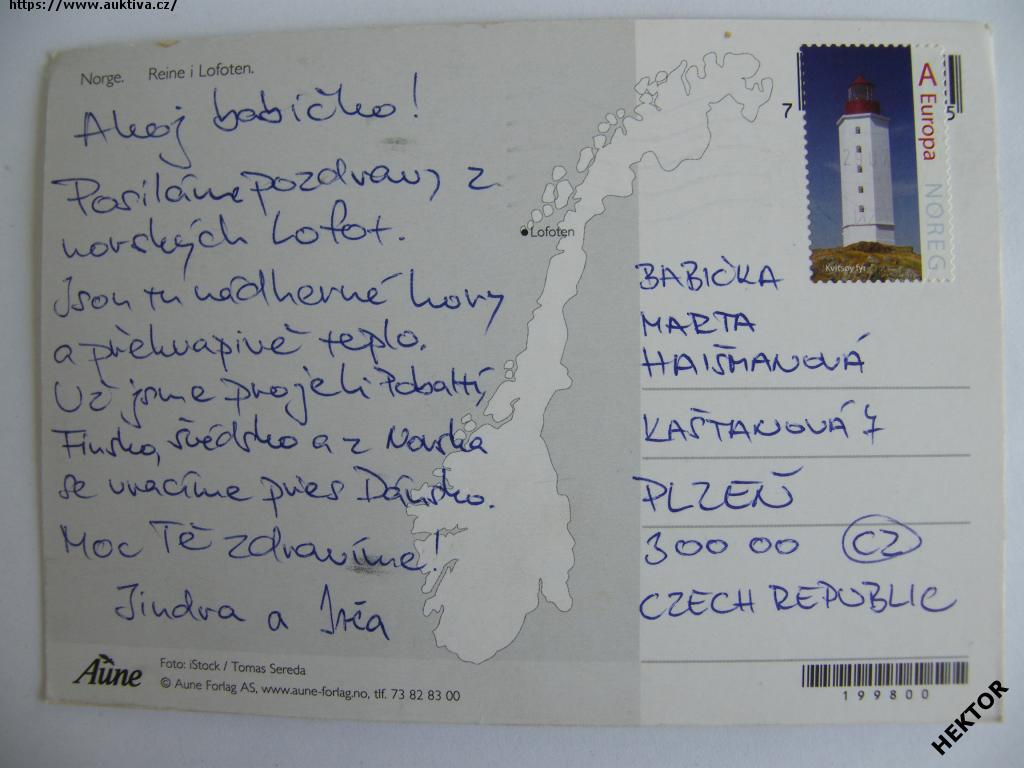 https://www.auktiva.cz/
Norge. Reine i Lofoten.
Ahoj babičko!
Posíláme pozdravy z
norských Lofot.
Jsou tu nádherné hory
a překvapivě teplo.
Už jsme projeli Pobaltí,
Finsko, švédsko a z Norska
se vracíme přes Dánsko.
Moc Tě zdravíme!
Jindra a
Lofoten
7
5
A Europa
NOREG
Kvitsøy fyr
BABIČKA
MARTA
HAIŠMANOVÁ
KAŠTANOVÁ 7
PLZEŇ
300 00 CZ
CZECH REPUBLIC
Aune
Foto: iStock / Tomas Sereda
© Aune Forlag AS, www.aune-forlag.no, tlf. 73 82 83 00
199800
HEKTOR